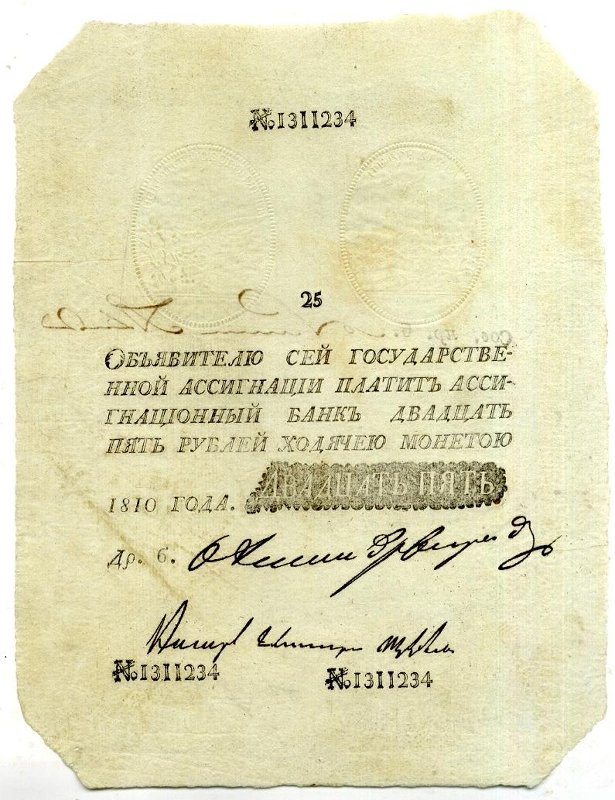 №1311234
25
ОБЪЯВИТЕЛЮ СЕЙ ГОСУДАРСТВЕ-
ННОЙ АССИГНАЦІИ ПЛАТИТЪ АССИ-
ГНАЦІОННЫЙ БАНКЪ ДВАДЦАТЬ
ПЯТЬ РУБЛЕЙ ХОДЯЧЕЮ МОНЕТОЮ
1810 ГОДА. ДВАДЦАТЬ ПЯТЬ
Др. б.
№1311234 №1311234